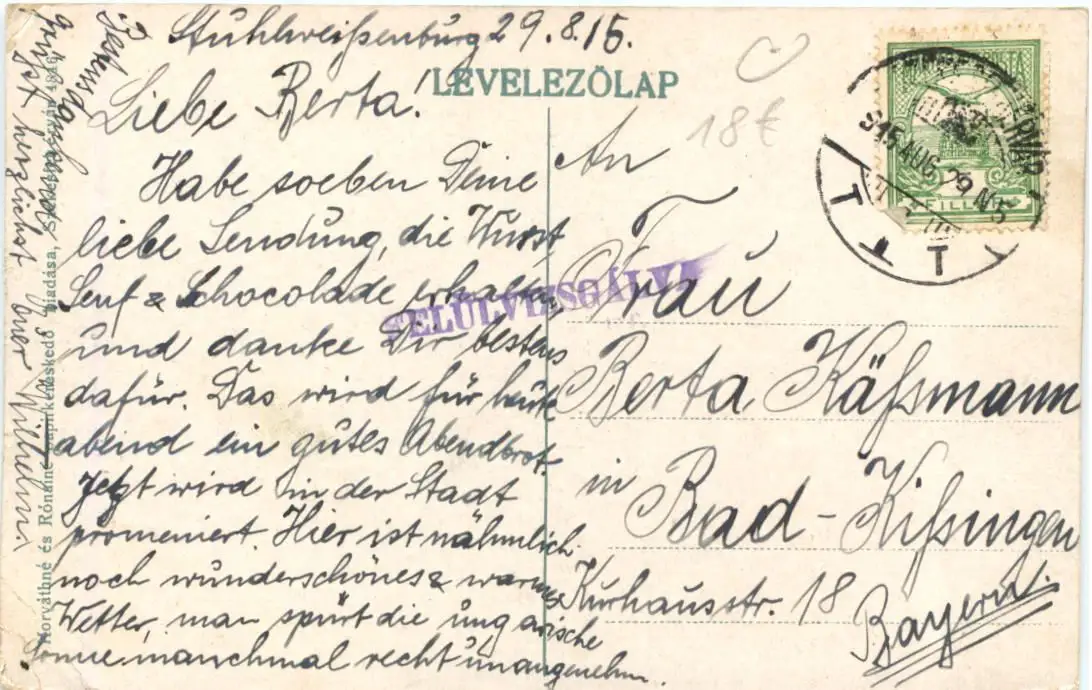 Stuhlweißenburg 29.8.15.
LEVELEZŐLAP
18€
Liebe Berta!
Habe soeben Deine
liebe Sendung, die Wurst,
Senf & Schocolade erhalten,
und danke Dir bestens
dafür. Das wird für heute
abend ein gutes Abendbrot.
Jetzt wird in der Stadt
promeniert. Hier ist nähmlich
noch wunderschönes & warmes
Wetter, man spürt die ungarische
Sonne manchmal recht unangenehm.
Gerzl herzlichst Euer Wilhelm
Horváthné és Rónainé papirkereskedő kiadása,
FELÜLVIZSGÁLVA
An
Frau
Berta Käßmann
in
Bad-Kißingen
Kurhausstr. 18
Bayern.
915 AUG. 29 N5
FILLÉR
T T T T